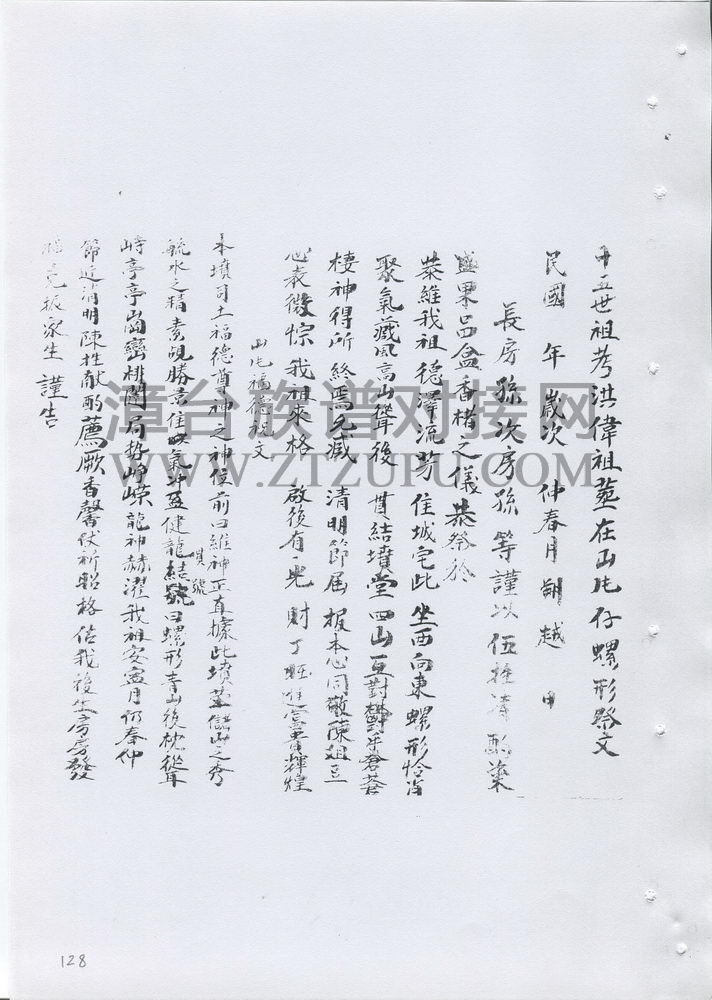 十五世祖考洪偉祖塋在山庀仔螺形祭文
民國 年歲次 仲春月朔越
長房孫次房孫等謹以伍牲清酌粢
盛果品盒香楮之儀恭祭於
恭維我祖德澤流芳佳城宅此坐西向東螺形恰肖
聚氣藏風高山聳後貫結墳堂四山互對鬱乎蒼蒼
棲神得所終焉允臧清明節屆報本心同敬陳俎豆
心表微悰我祖來格啟後有光財丁旺進富貴輝煌
山庀福德祝文
本墳司土福德尊神之神位前曰維神正直據此墳塋儲山之秀
毓水之精素覘勝景佳城氣冲盈健龍結號曰螺形青山後枕聳
貫號
峙亭亭崗巒排闥局勢崢嶸龍神赫濯我祖安寧月仍春仲
節近清明陳牲献酌薦厥香馨伏祈昭格佑我後生房房發
振家生 謹告
漳台族谱对接网
WWW.ZTZUPU.COM
128